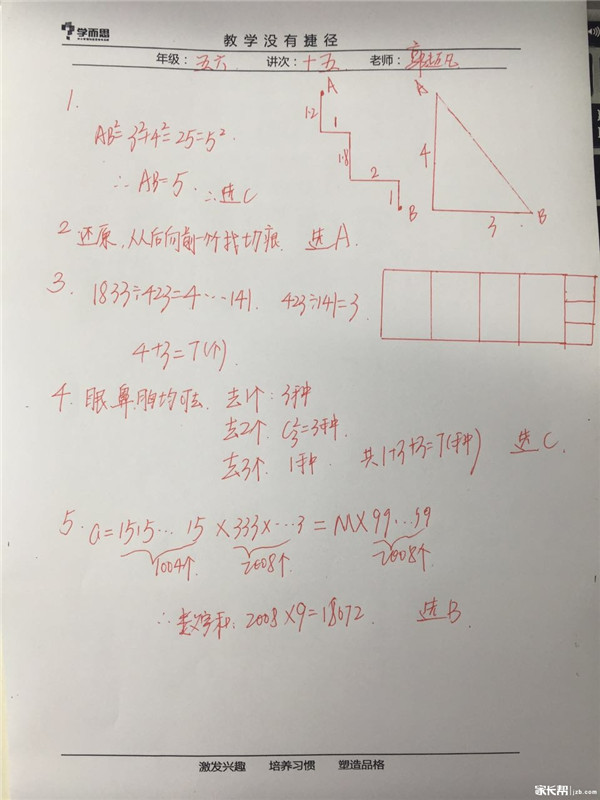 学而思
教学没有捷径
年级：五六 讲次：十五 老师：郭
1.
AB²=3²+4²=25=5²
∴ AB=5. ∴选C
A
1.2
1
1.8
2
1
B
A
4
3
B
2 还原，从后向前一个个找切痕. 选A.
3. 1833÷423=4…141. 423÷141=3.
4+3=7(个)
4. 眼、鼻、胸均可去. 去1个: 3种
去2个. C²₃=3种.
去3个. 1种. 共1+3+3=7(种) 选C.
5. a=1515…15×333×…3=M×99…99
1004个 2008个 2008个
∴数字和: 2008×9=18072. 选B.
激发兴趣 培养习惯 塑造品格
家长帮 jzb.com